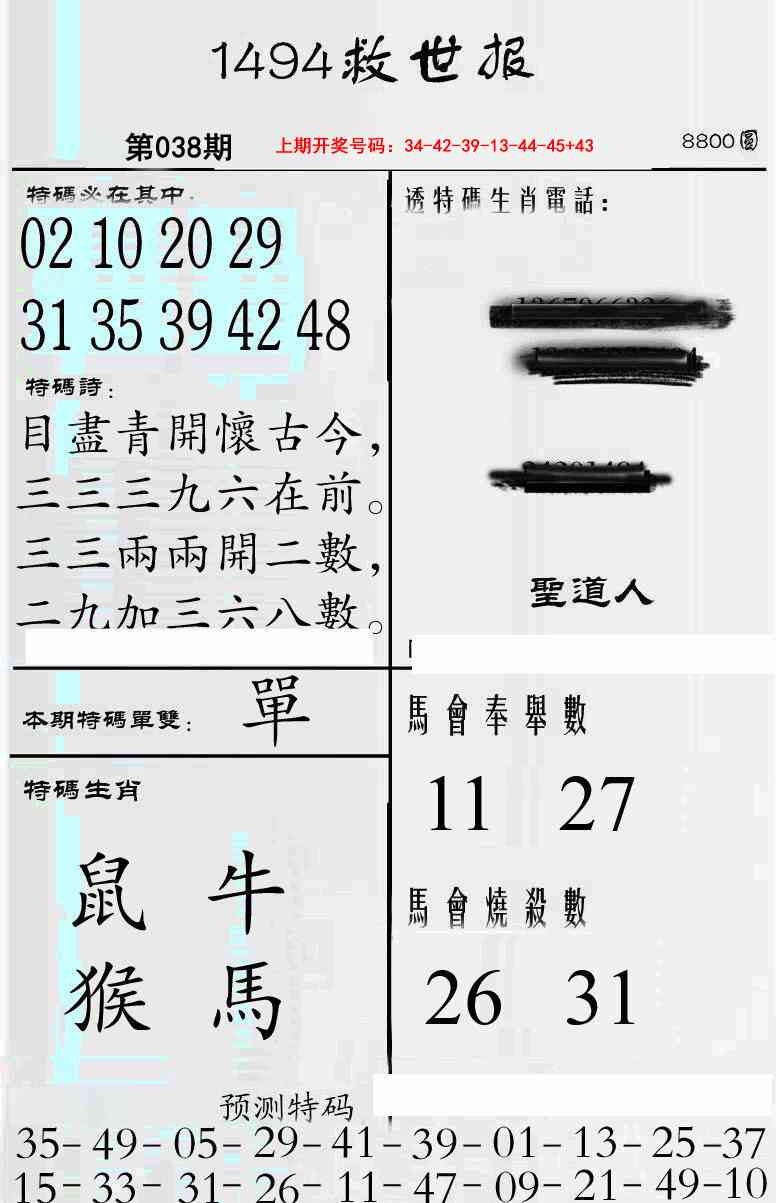 1494救世报
第038期
上期开奖号码：34-42-39-13-44-45+43
8800圓
特碼必在其中:
02 10 20 29
31 35 39 42 48
特碼詩:
目盡青開懷古今，
三三三九六在前。
三三兩兩開二數，
二九加三六八數。
本期特碼單雙: 單
特碼生肖
鼠 牛
猴 馬
透特碼生肖電話:
聖道人
馬會奉舉數
11 27
馬會燒殺數
26 31
预测特码
35-49-05-29-41-39-01-13-25-37
15-33-31-26-11-47-09-21-49-10